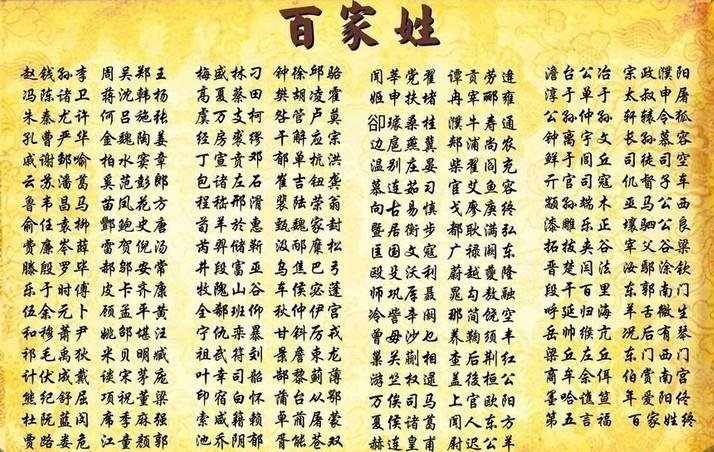 百家姓
赵钱孙李 周吴郑王
冯陈诸卫 蒋沈韩杨
朱秦尤许 何吕施张
孔曹严华 金魏陶姜
戚谢邹喻 柏水窦章
云苏潘葛 奚范彭郎
鲁韦昌马 苗凤花方
俞任袁柳 酆鲍史唐
费廉岑薛 雷贺倪汤
滕殷罗毕 郝邬安常
乐于时傅 皮卞齐康
伍余元卜 顾孟平黄
和穆萧尹 姚邵堪汪
祁毛禹狄 米贝明臧
计伏成戴 谈宋茅庞
熊纪舒屈 项祝董梁
杜阮蓝闵 席季麻强
贾路娄危 江童颜郭
梅盛林刁 钟徐邱骆
高夏蔡田 樊胡凌霍
虞万支柯 昝管卢莫
经房裘缪 干解应宗
丁宣贲邓 郁单杭洪
包诸左石 崔吉钮龚
程嵇邢滑 裴陆荣翁
荀羊於惠 甄曲家封
芮羿储靳 汲邴糜松
井段富巫 乌焦巴弓
牧隗山谷 车侯宓蓬
全郗班仰 秋仲伊宫
宁仇栾暴 甘钭厉戎
祖武符刘 景詹束龙
叶幸司韶 郜黎蓟薄
印宿白怀 蒲台从鄂
索咸籍赖 卓蔺屠蒙
池乔阴郁 胥能苍双
闻莘党翟 谭贡劳逄
姬申扶堵 冉宰郦雍
卻璩桑桂 濮牛寿通
边扈燕冀 郏浦尚农
温别庄晏 柴瞿阎充
慕连茹习 宦艾鱼容
向古易慎 戈廖庾终
暨居衡步 都耿满弘
匡国文寇 广禄阙东
殴殳沃利 蔚越夔隆
师巩厍聂 晁勾敖融
冷訾辛阚 那简饶空
曾毋沙乜 养鞠须丰
巢关蒯相 查后荆红
游竺权逯 盖後桓公
万俟司马 上官欧阳
夏侯诸葛 闻人东方
赫连皇甫 尉迟公羊
澹台公冶 宗政濮阳
淳于单于 太叔申屠
公孙仲孙 轩辕令狐
钟离宇文 长孙慕容
鲜于闾丘 司徒司空
亓官司寇 仉督子车
颛孙端木 巫马公西
漆雕乐正 壤驷公良
拓跋夹谷 宰父谷梁
晋楚闫法 汝鄢涂钦
段干百里 东郭南门
呼延归海 羊舌微生
岳帅缑亢 况后有琴
梁丘左丘 东门西门
商牟佘佴 伯赏南宫
墨哈谯笪 年爱阳佟
第五言福 百家姓终